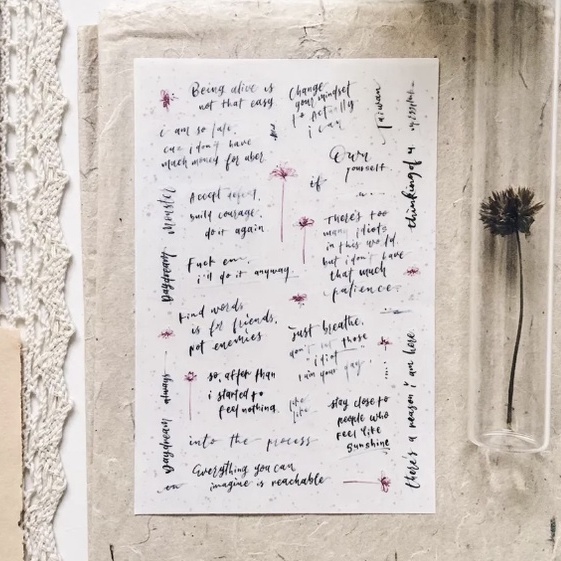 Being alive is
not that easy
Change
your mindset
to Actually
i can
Taiwan
thinking of u
i am so late,
cuz i don't have
much money for uber
Own
yourself
if
Accept defeat,
build courage,
do it again
There's too
many idiots
in this world.
but i don't have
that much
patience
Fuck em,
i'll do it anyway
Kind words
is for friends,
not enemies
just breathe,
don't let those
idiot
so, after than
i started to
feel nothing.
stay close to
people who
feel like
sunshine
into the process
Everything you can
imagine is reachable
there's a reason i am here
always